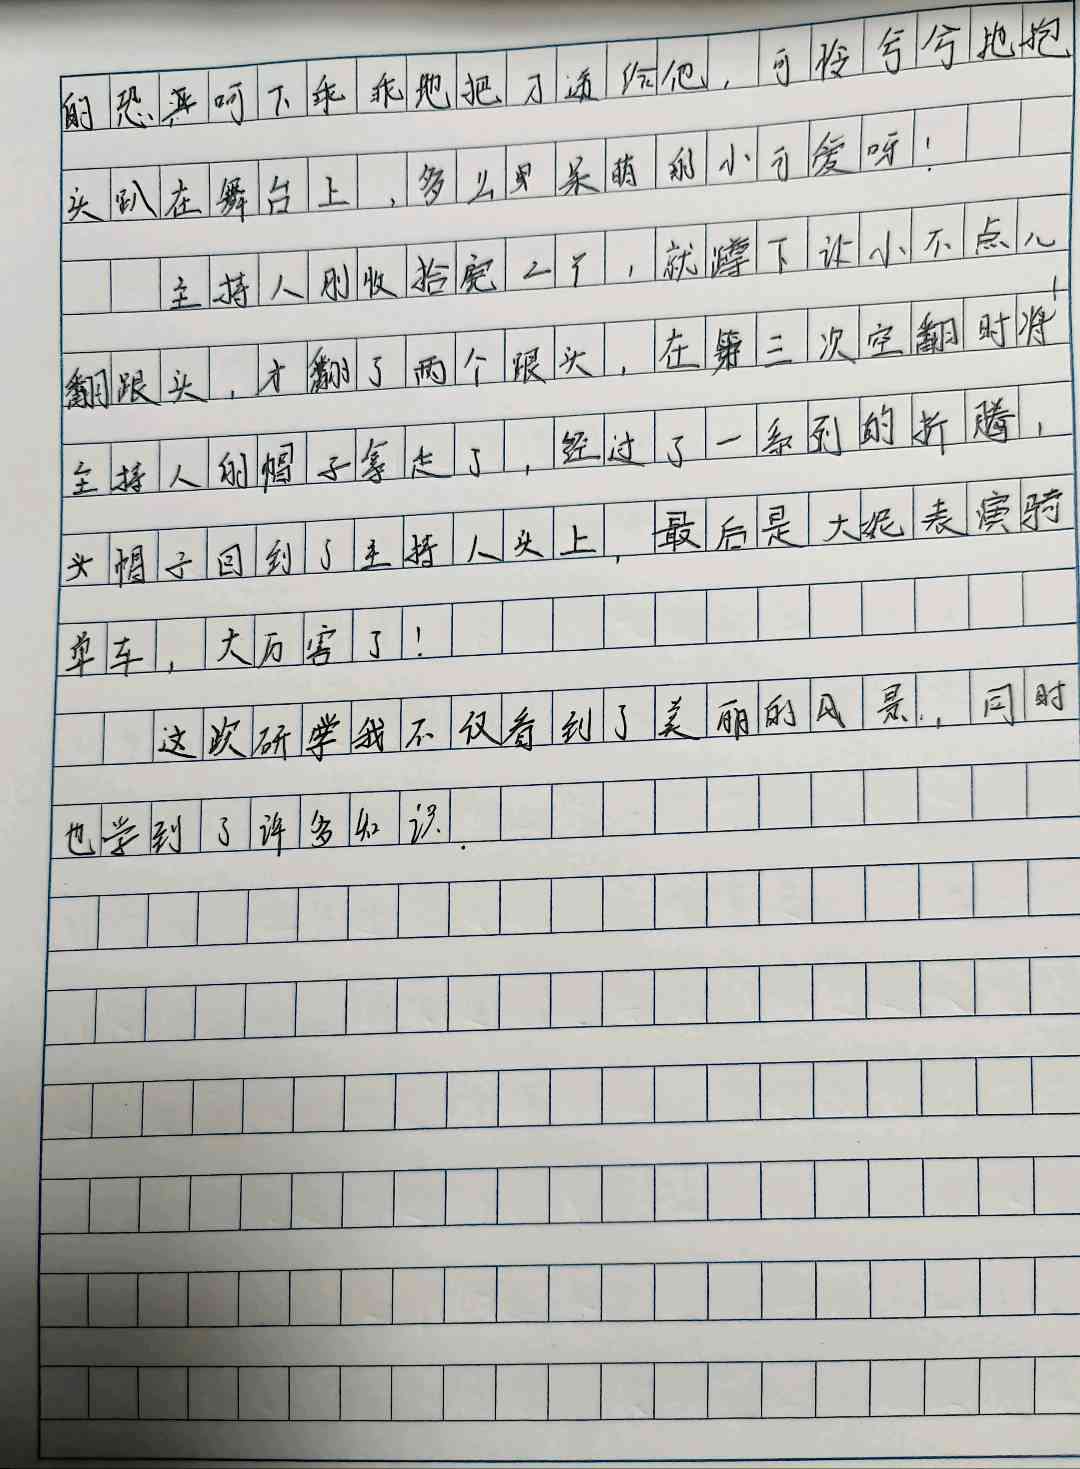 的恐声呵下乖乖地把刀递给他，可怜兮兮地抱
头趴在舞台上，多么呆萌的小可爱呀！
主持人刚收拾完二丫，就蹲下让小不点儿
翻跟头，才翻了两个跟头，在第三次空翻时将
主持人的帽子拿走了，经过了一系列的折腾，
头帽子回到了主持人头上，最后是大妮表演骑
单车，大厉害了！
这次研学我不仅看到了美丽的风景，同时
也学到了许多知识.